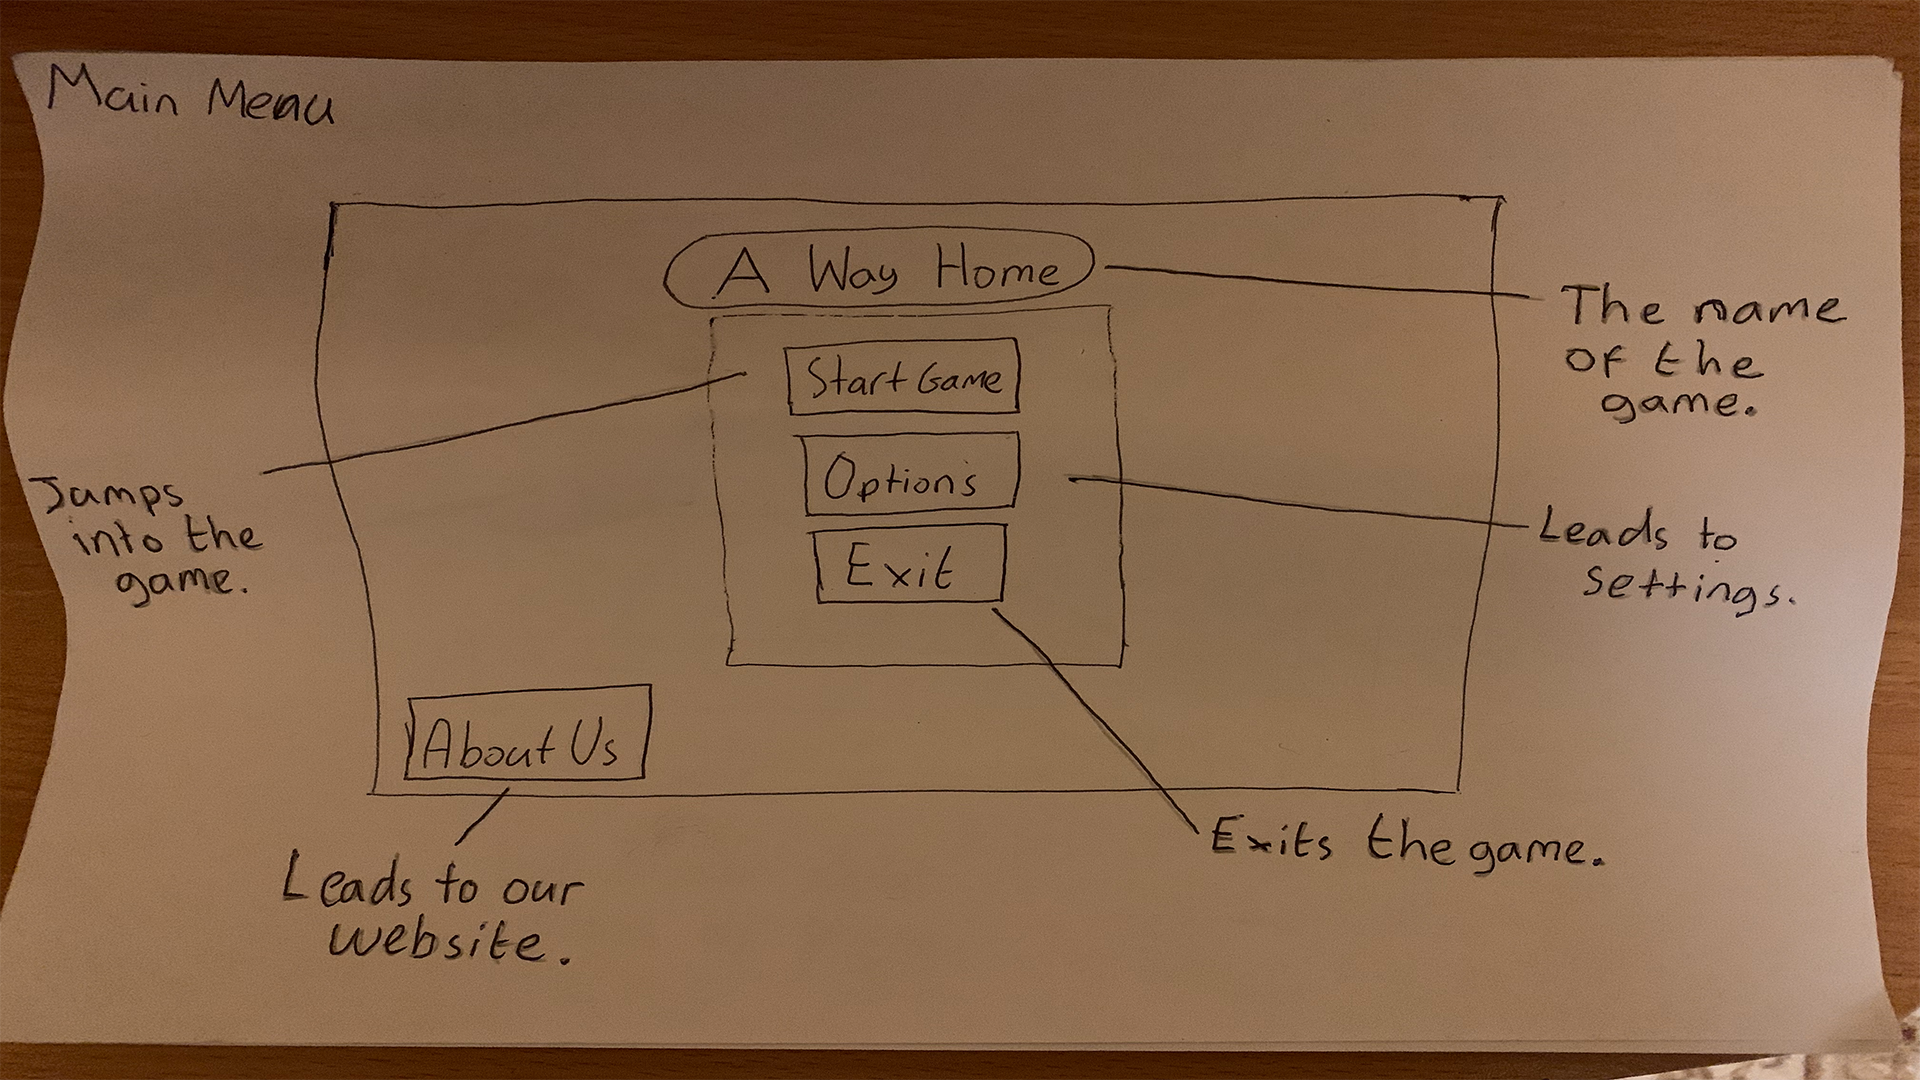 Main Menu
A Way Home
The name
of the
game.
Start Game
Jumps
into the
game.
Options
Leads to
settings.
Exit
About Us
Exits the game.
Leads to our
website.